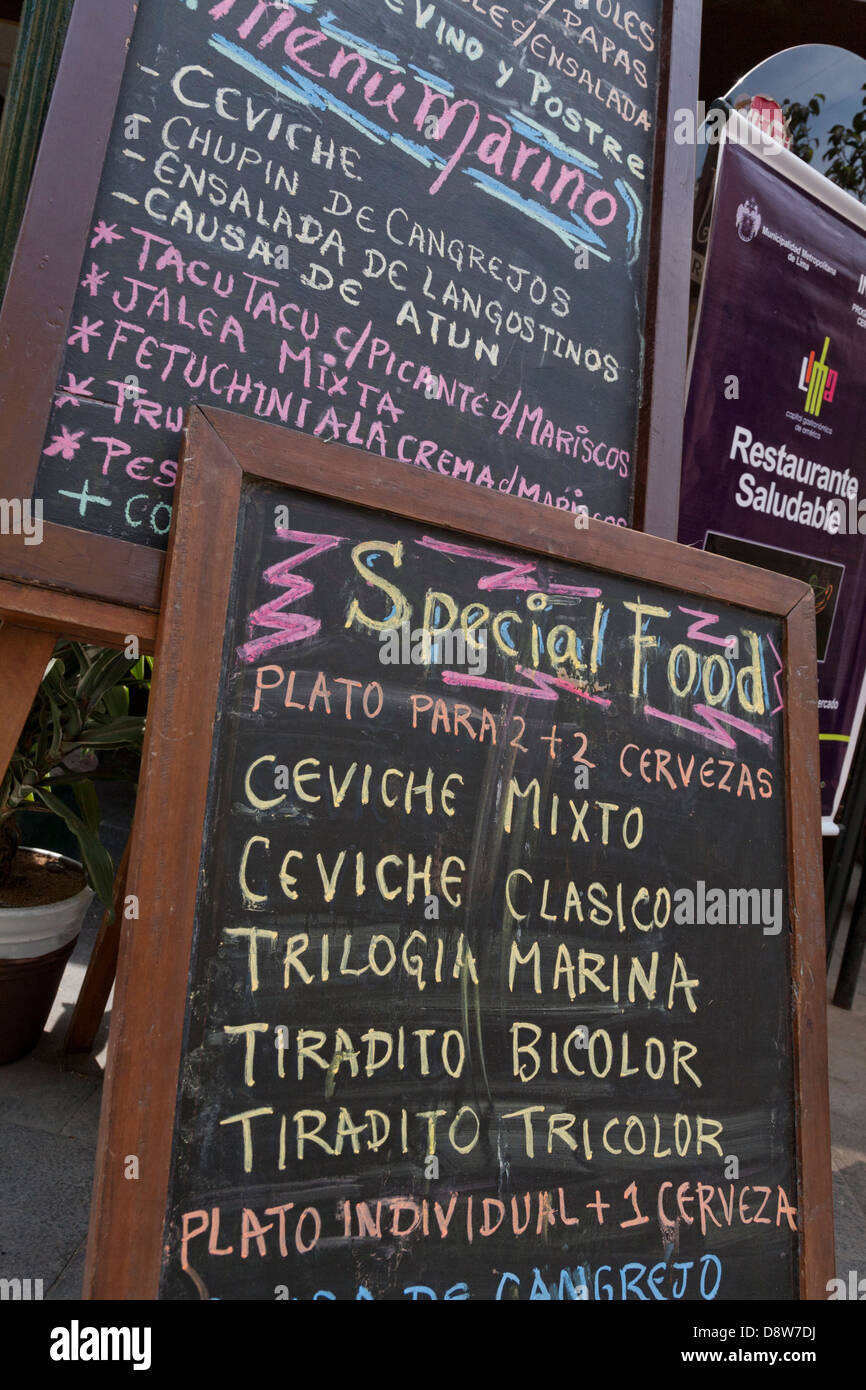 PAPAS
D/ENSALADA
VINO Y POSTRE
Menú Marino
- CEVICHE
- CHUPIN DE CANGREJOS
- ENSALADA DE LANGOSTINOS
- CAUSA DE ATUN
* TACUTACU C/PICANTE D/MARISCOS
* JALEA MIXTA
* FETUCHINI A LA CREMA D/MARISCOS
* TRU
* PES
+ CO
Special Food
PLATO PARA 2 + 2 CERVEZAS
CEVICHE MIXTO
CEVICHE CLASICO
TRILOGIA MARINA
TIRADITO BICOLOR
TIRADITO TRICOLOR
PLATO INDIVIDUAL + 1 CERVEZA
DE CANGREJO
Municipalidad Metropolitana
de Lima
lima
capital gastronómica
de américa
Restaurante
Saludable
alamy
Image ID: D8W7DJ
www.alamy.com